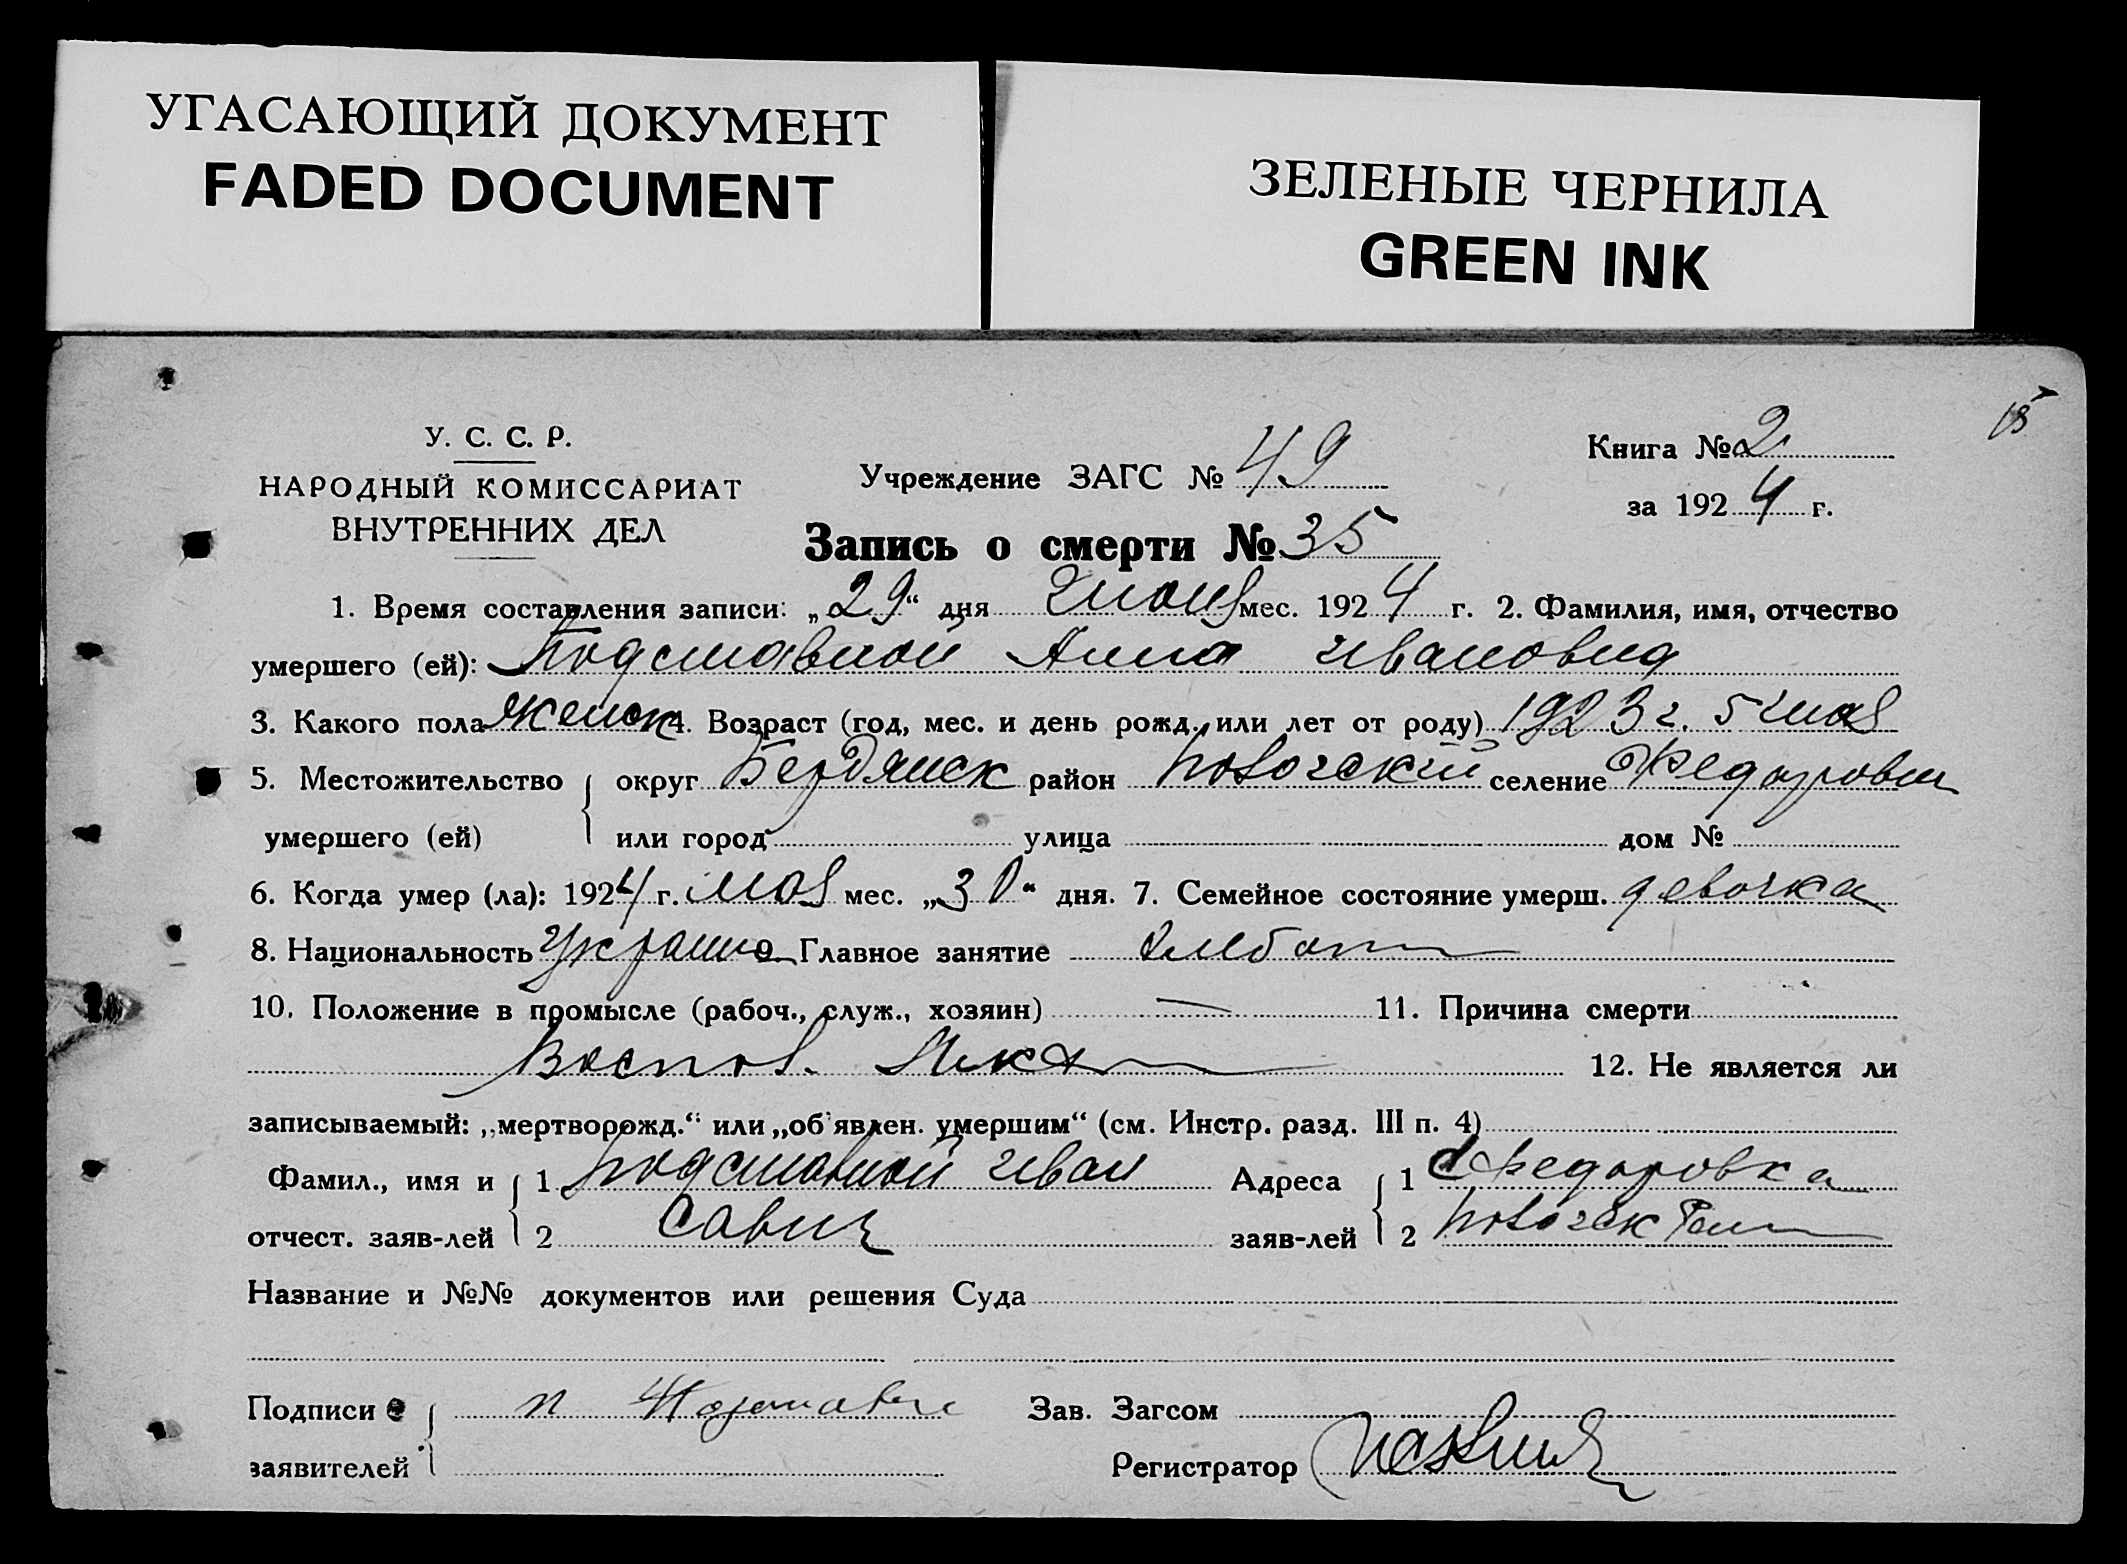 УГАСАЮЩИЙ ДОКУМЕНТ
FADED DOCUMENT
ЗЕЛЕНЫЕ ЧЕРНИЛА
GREEN INK
15
У. С. С. Р.
НАРОДНЫЙ КОМИССАРИАТ
ВНУТРЕННИХ ДЕЛ
Учреждение ЗАГС № 49
Книга № 2
за 1924 г.
Запись о смерти № 35
1. Время составления записи: „29“ дня Июня мес. 1924 г. 2. Фамилия, имя, отчество
умершего (ей): Подставной Анна Ивановна
3. Какого пола женск 4. Возраст (год, мес. и день рожд., или лет от роду) 1923 г. 5 мая
5. Местожительство округ Бердянск район селение Федоровка
умершего (ей) или город улица дом №
6. Когда умер (ла): 1924 г. мая мес. „30“ дня. 7. Семейное состояние умерш. девочка
8. Национальность Украин 9. Главное занятие хлебоп
10. Положение в промысле (рабоч., служ., хозяин) — 11. Причина смерти
Воспол. 12. Не является ли
записываемый: „мертворожд.“ или „об'явлен. умершим“ (см. Инстр. разд. III п. 4)
Фамил., имя и 1 Подставной Иван Адреса 1 С Федоровка
отчест. заяв-лей 2 Савич заяв-лей 2
Название и №№ документов или решения Суда
Подписи Зав. Загсом
заявителей Регистратор